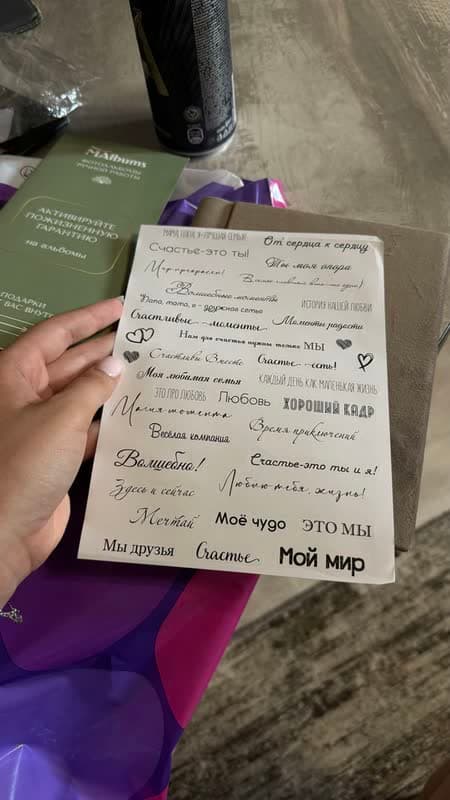 MAlbums
ФОТОАЛЬБОМЫ
РУЧНОЙ РАБОТЫ
АКТИВИРУЙТЕ
ПОЖИЗНЕННУЮ
ГАРАНТИЮ
на альбомы
ПОДАРКИ
ВАС ВНУТРИ
Счастье-это ты!
От сердца к сердцу
Мир прекрасен!
Ты моя опора
Волшебные моменты
Папа, мама, я - дружная семья
ИСТОРИЯ НАШЕЙ ЛЮБВИ
Счастливые моменты
Моменты радости
Нам для счастья нужны только МЫ
Счастливы Вместе
Счастье есть!
Моя любимая семья
КАЖДЫЙ ДЕНЬ КАК МАЛЕНЬКАЯ ЖИЗНЬ
ЭТО ПРО ЛЮБОВЬ
Любовь
ХОРОШИЙ КАДР
Магия момента
Время приключений
Весёлая компания
Волшебно!
Счастье-это ты и я!
Здесь и сейчас
Люблю тебя, жизнь!
Мечтай
Моё чудо
ЭТО МЫ
Мы друзья
Счастье
Мой мир